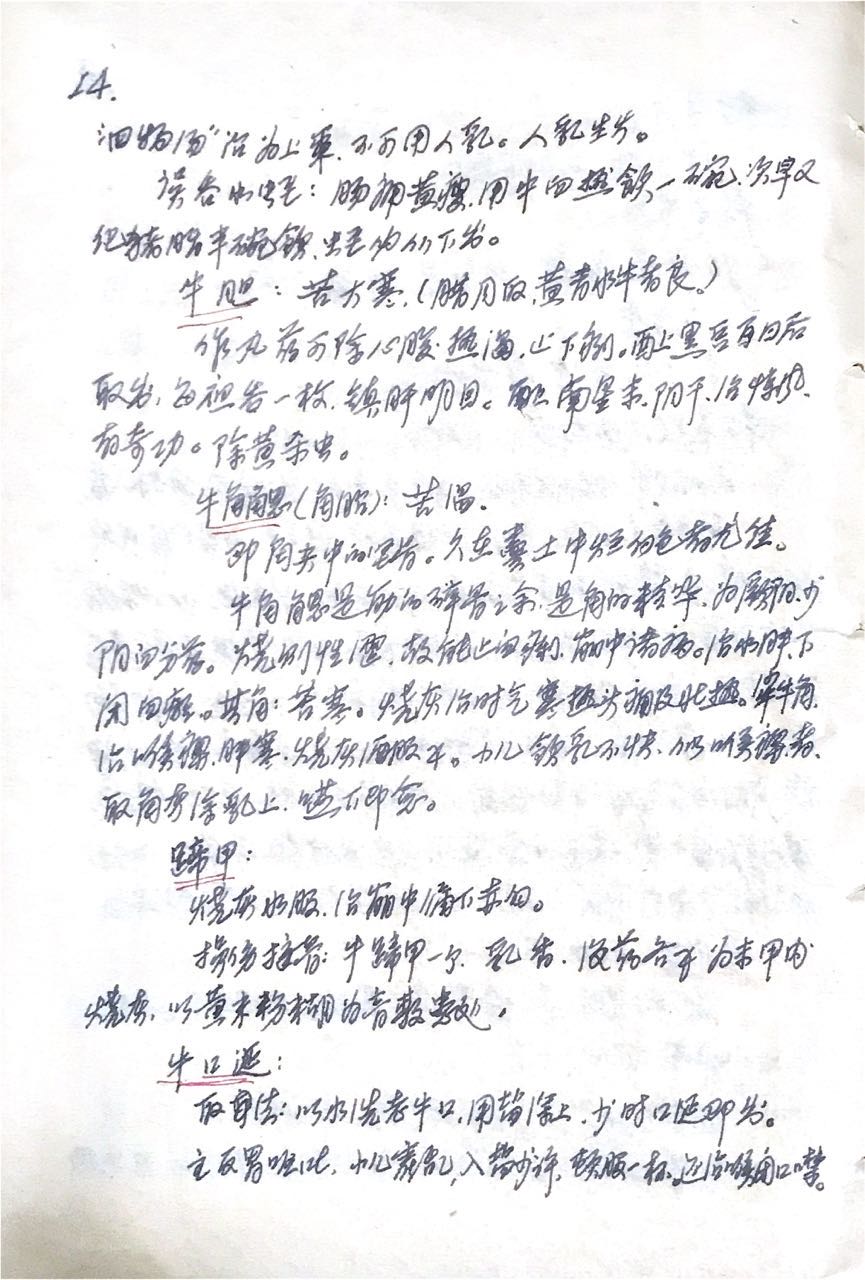 14.
"四物汤"治为上策.不可用人乳。人乳生方。
误吞水蛭:肠痛黄瘦.用牛血热饮一碗.次早又
化猪脂半碗饮.蛭从你下出。
牛胆:苦大寒.(腊月取.黄者水牛者良。)
作丸药可除心腹热渴.止下痢。酿上黑豆百日后
取出.每夜吞一枚.镇肝明目。酿南星末.阴干.治惊风.
有奇功。除黄杀虫。
牛角䚡(角胎):苦温.
即角尖中的坚骨。久在粪土中烂白色者尤佳。
牛角䚡是筋的碎骨之余.是角的精华.为厥阴.少
阴血分药。烧则性涩.故能止血痢.崩中诸病。治水肿.下
闭血瘀。其角:苦寒。烧灰治时气寒热头痛及壮热。犀牛角.
治喉痹.肿塞.烧灰酒服半。小儿饮乳不快.似喉痹者.
取角灰涂乳上.咽下即愈。
蹄甲:
烧灰水服.治崩中漏下赤白。
损伤接骨:牛蹄甲一个.乳香.没药各半为末甲内
烧灰.以黄米粉糊为膏敷患处。
牛口涎:
取草法:以水洗老牛口.用盐涂上.少时口涎即出。
主反胃呕吐.小儿霍乱,入盐少许.顿服一杯.还治喉闭口噤。